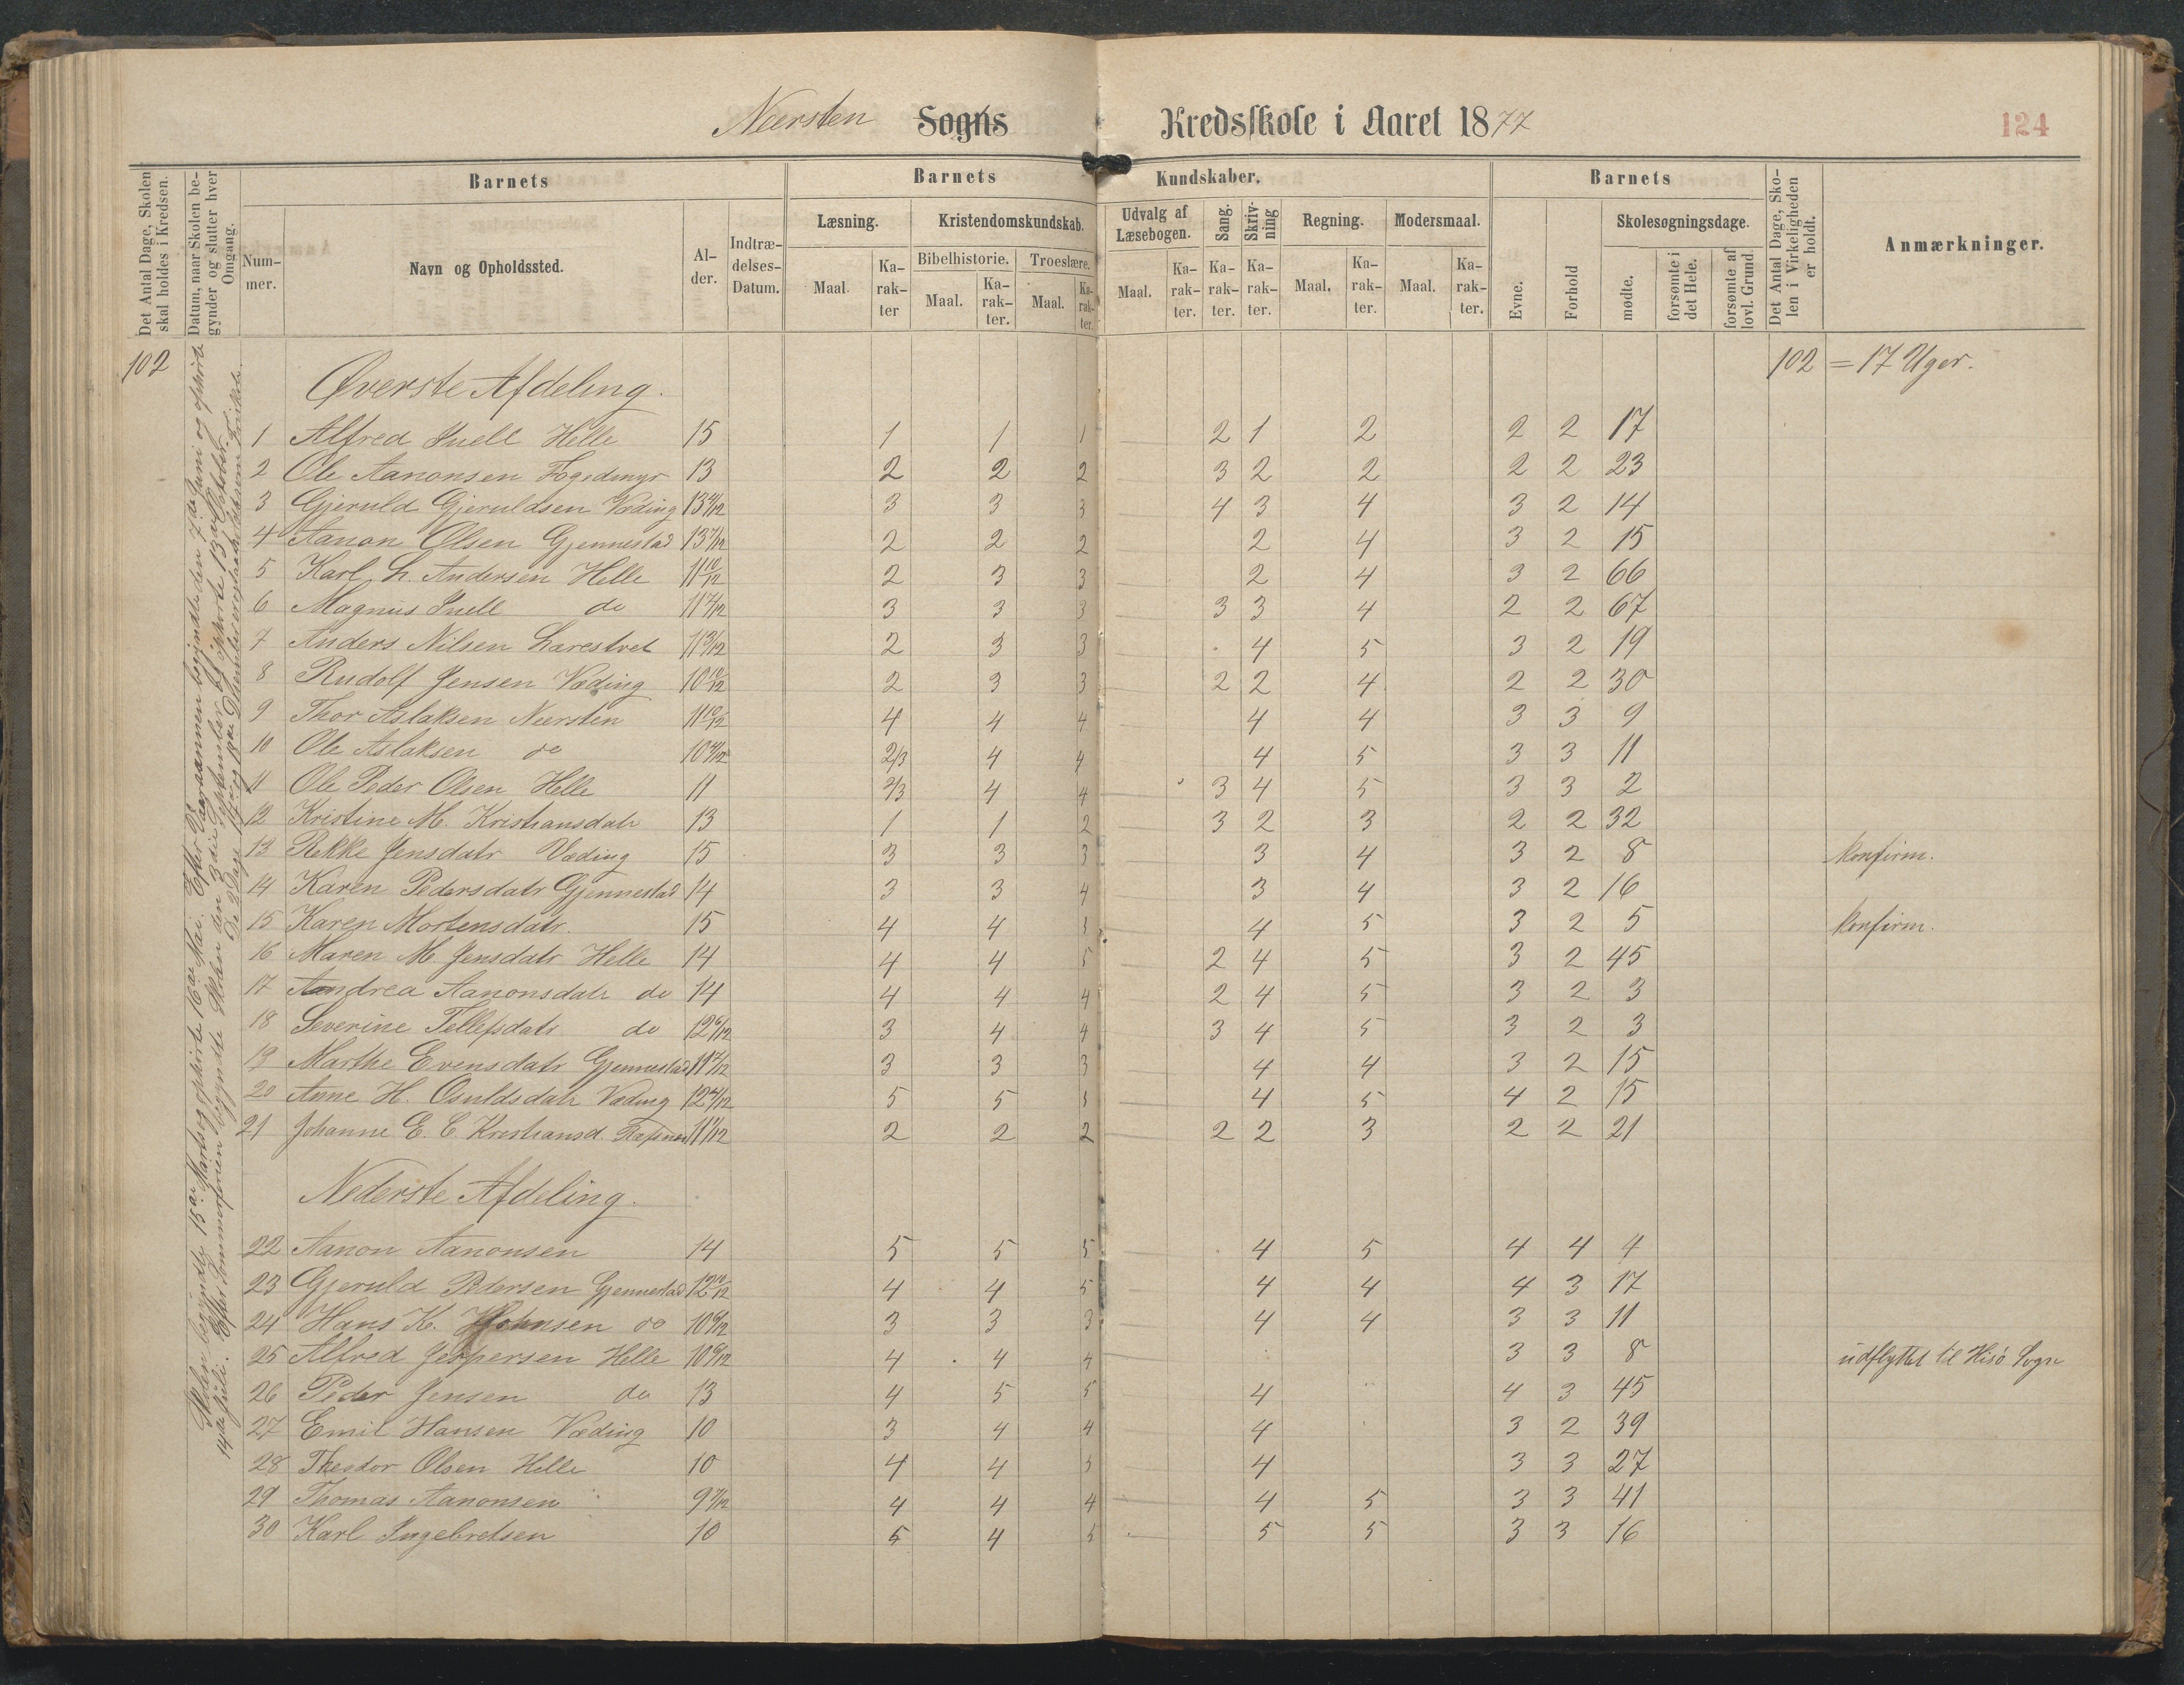 Neersten Sogns Kredsskole i Aaret 1877
124
Det Antal Dage, Skolen skal holdes i Kredsen.
Datum, naar Skolen begynder og slutter hver Omgang.
Barnets
Nummer.
Navn og Opholdssted.
Alder.
Indtrædelses-Datum.
Barnets Kundskaber.
Læsning.
Maal.
Karakter
Kristendomskundskab.
Bibelhistorie.
Maal.
Karakter.
Troeslære.
Maal.
Karakter.
Udvalg af Læsebogen.
Maal.
Karakter.
Sang.
Karakter.
Skrivning
Karakter.
Regning.
Maal.
Karakter.
Modersmaal.
Maal.
Karakter.
Barnets
Evne.
Forhold
Skolesøgningsdage.
mødte.
forsømte i det Hele.
forsømte af lovl. Grund
Det Antal Dage, Skolen i Virkeligheden er holdt.
Anmærkninger.
102
102 = 17 Uger.
Skolen begyndte 15de Marts og ophørte 16de Mai. Efter Vaaraannen begyndte den 7de Juni og ophørte
14de Juli. Efter Sommerferien begyndte Skolen den 3die September og ophørte 13de October.
Øverste Afdeling.
1 Alfred Juell Helle 15 1 1 1 2 1 2 2 2 17
2 Ole Aanonsen Fogedmyr 13 2 2 2 3 2 2 2 2 23
3 Gjeruld Gjeruldsen Væding 13 3 3 3 4 3 4 3 2 14
4 Aanon Olsen Gjennestad 13 7/12 2 2 2 2 4 3 2 15
5 Karl L. Andersen Helle 11 10/12 2 3 3 2 4 3 2 66
6 Magnus Juell do 11 7/12 3 3 3 3 3 4 2 2 67
7 Anders Nilsen Larestvet 11 3/12 2 3 3 4 5 3 2 19
8 Rudolf Jensen Væding 10 10/12 2 3 3 2 2 4 2 2 30
9 Thor Aslaksen Neersten 11 10/12 4 4 4 4 4 3 3 9
10 Ole Aslaksen do 10 2/3 4 4 4 5 3 3 11
11 Ole Peder Olsen Helle 11 2/3 4 4 3 4 5 3 3 2
12 Kristine M. Kristiansdatr 13 1 1 2 3 2 3 2 2 32
13 Rekke Jensdatr Væding 15 3 3 3 3 4 3 2 8 konfirm.
14 Karen Pedersdatr Gjennestad 14 3 3 4 3 4 3 2 16
15 Karen Mortensdatr. 15 4 4 4 5 3 2 5 konfirm.
16 Maren M. Jensdatr Helle 14 4 4 5 2 4 5 3 2 45
17 Andrea Aanonsdatr do 14 4 4 4 2 4 5 3 2 3
18 Severine Tellefsdatr do 12 6/12 3 4 4 3 4 5 3 2 3
19 Marthe Evensdatr Gjennestad 11 7/12 3 3 3 4 4 3 2 15
20 Anne H. Osuldsdatr Væding 12 5 5 4 5 4 2 15
21 Johanne E. C. Kristiansd. 11 2 2 2 2 2 3 2 2 21
Nederste Afdeling.
22 Aanon Aanonsen 14 5 5 5 4 5 4 4 4
23 Gjeruld Pedersen Gjennestad 12 10/12 4 4 5 4 4 4 3 17
24 Hans K. Johnsen do 10 3 3 3 4 4 3 3 11
25 Alfred Jespersen Helle 10 4 4 4 3 3 8 udflyttet til Hisø Sogn
26 Peder Jensen do 13 4 5 5 4 4 3 45
27 Emil Hansen Væding 10 3 4 4 4 3 2 39
28 Theodor Olsen Helle 10 4 4 5 4 3 3 27
29 Thomas Aanonsen 9 7/12 4 4 4 4 5 3 3 41
30 Karl Ingebretsen 10 5 4 5 5 5 3 3 16